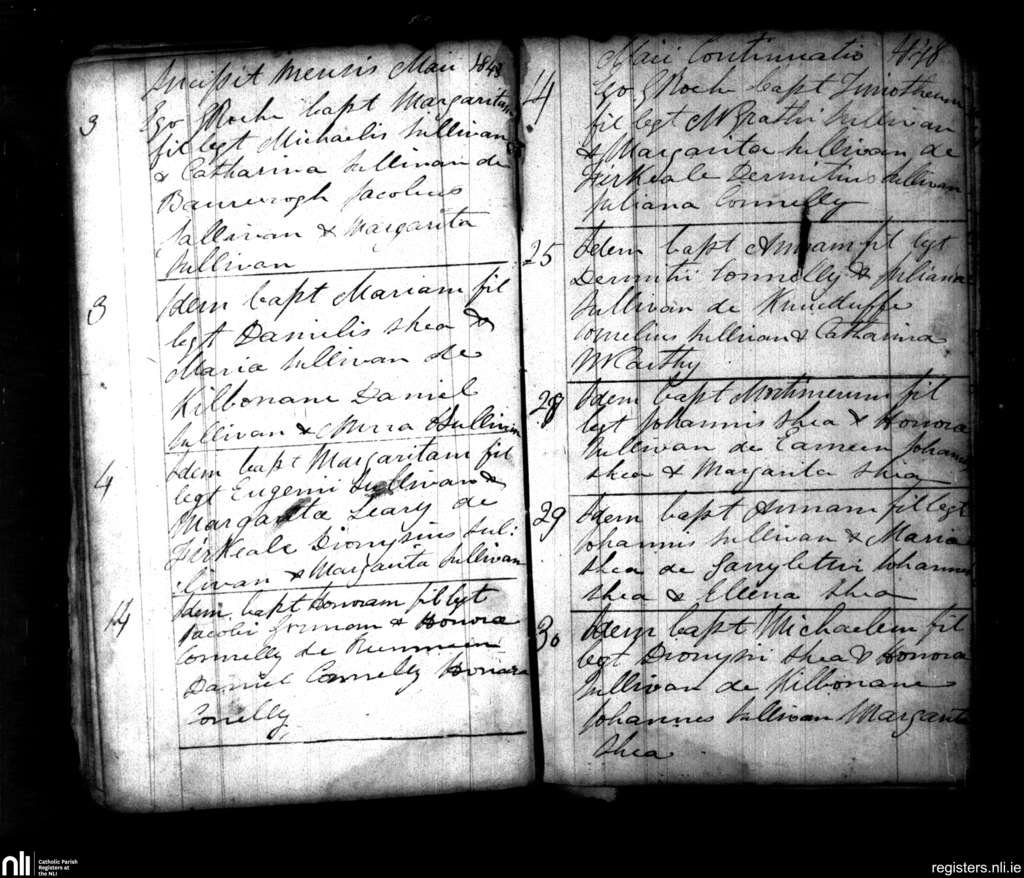 Incipit Mensis Maii 1848
3 Ego G Roche bapt Margaritam
fil legt Michaelis Sullivan
& Catharina Sullivan de
Jacobus
Sullivan & Margarita
Sullivan
3 Idem bapt Mariam fil
legt Danielis Shea &
Maria Sullivan de
Kilbonane Daniel
Sullivan & Sullivan
4 Idem bapt Margaritam fil
legt Eugenii Sullivan &
Margarita Leary de
Firkeale Dionysius Sul:
:livan & Margarita Sullivan
14 Idem bapt Honoram fil lgt
Jacobi & Honora
Connelly de
Daniel Connelly Honora
Conelly
Maii Continuatio 1848
Ego G Roche bapt Timotheum
fil legt Sullivan
& Margarita Sullivan de
Firkeale Dermitius Sullivan
Juliana Connelly
25 Idem bapt Annam fil lgt
Dermitii Connolly & Juliana
Sullivan de
Cornelius Sullivan & Catharina
McCarthy
28 Idem bapt fil
legt Johannis Shea & Honora
Sullivan de Johannes
Shea & Margarita Shea
29 Idem bapt Annam fil legt
Johannis Sullivan & Maria
Shea de Johannes
Shea & Ellena Shea
30 Idem bapt Michaelem fil
legt Dionysii Shea & Honora
Sullivan de Kilbonane
Johannes Sullivan Margarita
Shea
nli
Catholic Parish
Registers at
the NLI
registers.nli.ie